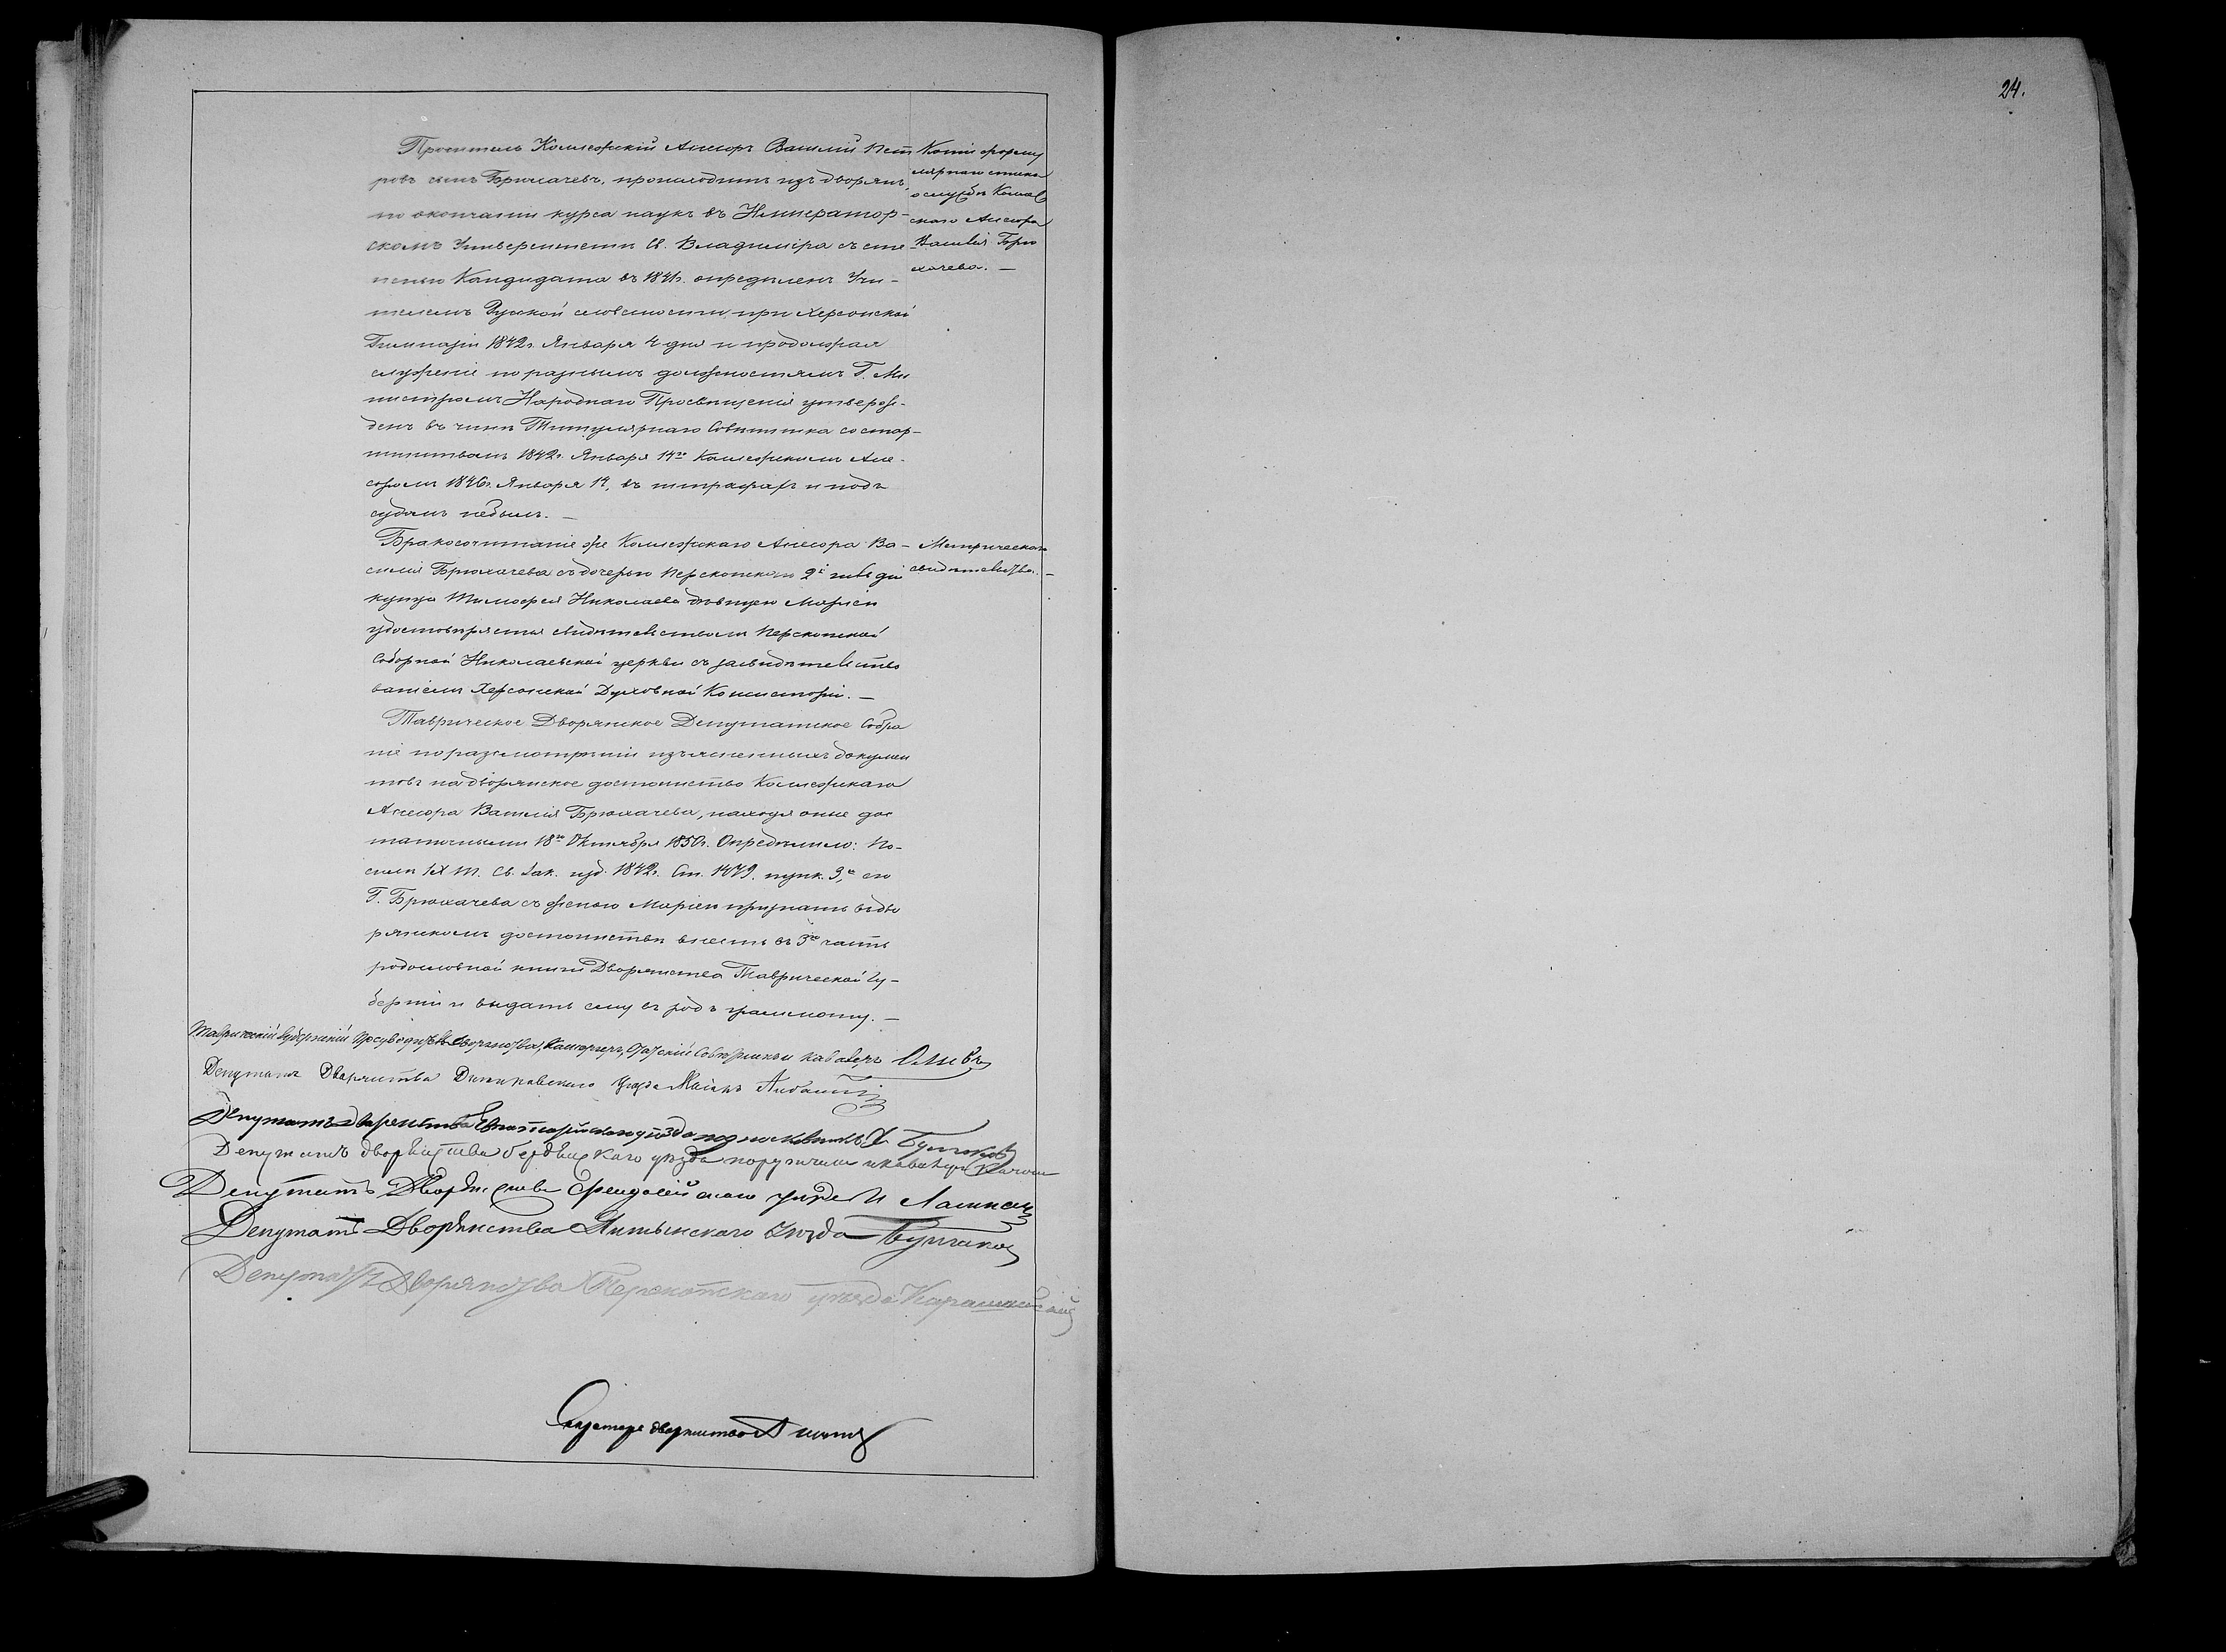 24.
Проситель Коллежскій Ассесоръ Василій Пет
ровъ сынъ Брюхачевъ, происходитъ изъ дворянъ,
по окончаніи курса наукъ въ Император-
скомъ Университетѣ Св. Владиміра съ сте
пенью Кандидата въ 1841г. опредѣленъ Учи-
телемъ Русской словесности, при Херсонской
Гимназіи 1842г. Января 4 дня и продолжая
служеніе по разнымъ должностямъ Г. Ми
нистромъ Народнаго Просвѣщенія утверж-
денъ въ чинѣ Титулярнаго Совѣтника со стар-
шинствомъ 1842г. Января 14го Коллежскимъ Ассе-
соромъ 1846г. Января 14, въ штрафахъ и подъ
судомъ небылъ. —
Копіи форму
лярнаго списка
о службѣ Коллеж
скаго Ассесора
Василія Брю
хачева. —
Бракосочитаніе же Коллежскаго Ассесора Ва-
силія Брюхачева съ дочерью Перекопскаго 2й гильдіи
купца Тимофея Николаева дѣвицею Маріею
удостовѣряется свидѣтельствомъ Перекопской
Соборной Николаевской церкви съ засвидѣтельство
ваніемъ Херсонской Духовной Консисторіи. —
Метрическаго
свидѣтельства. —
Таврическое Дворянское Депутатское Собра
ніе по разсмотрѣніи изъясненныхъ докумен
товъ на дворянское достоинство Коллежскаго
Ассесора Василія Брюхачева, находя оные дос
таточными 18го Октября 1850г. Опредѣлило: По-
силѣ IX т. Св. Зак. изд. 1842г. Ст. 1479. пунк. 3, его
Г. Брюхачева съ женою Маріею признать въ дво
рянскомъ достоинствѣ внесть въ 3ю часть
родословной книги Дворянства Таврической Гу-
берніи и выдать ему въ родъ грамоту. —
Таврическій Губернскій Предводитель Дворянства, Камергеръ, Статскій Совѣтникъ и кавалеръ
Депутатъ Дворянства Днепровскаго Уѣзда Маіоръ
Депутатъ дворянства Евпаторійскаго уѣзда подполковникъ
Депутатъ дворянства Бердянскаго уѣзда поручикъ и кавалеръ
Депутатъ Дворянства Феодосійскаго уѣзда
Депутатъ Дворянства Ялтинскаго Уѣзда Булгаковъ
Депутатъ Дворянства Перекопскаго уѣзда
Секретарь дворянства